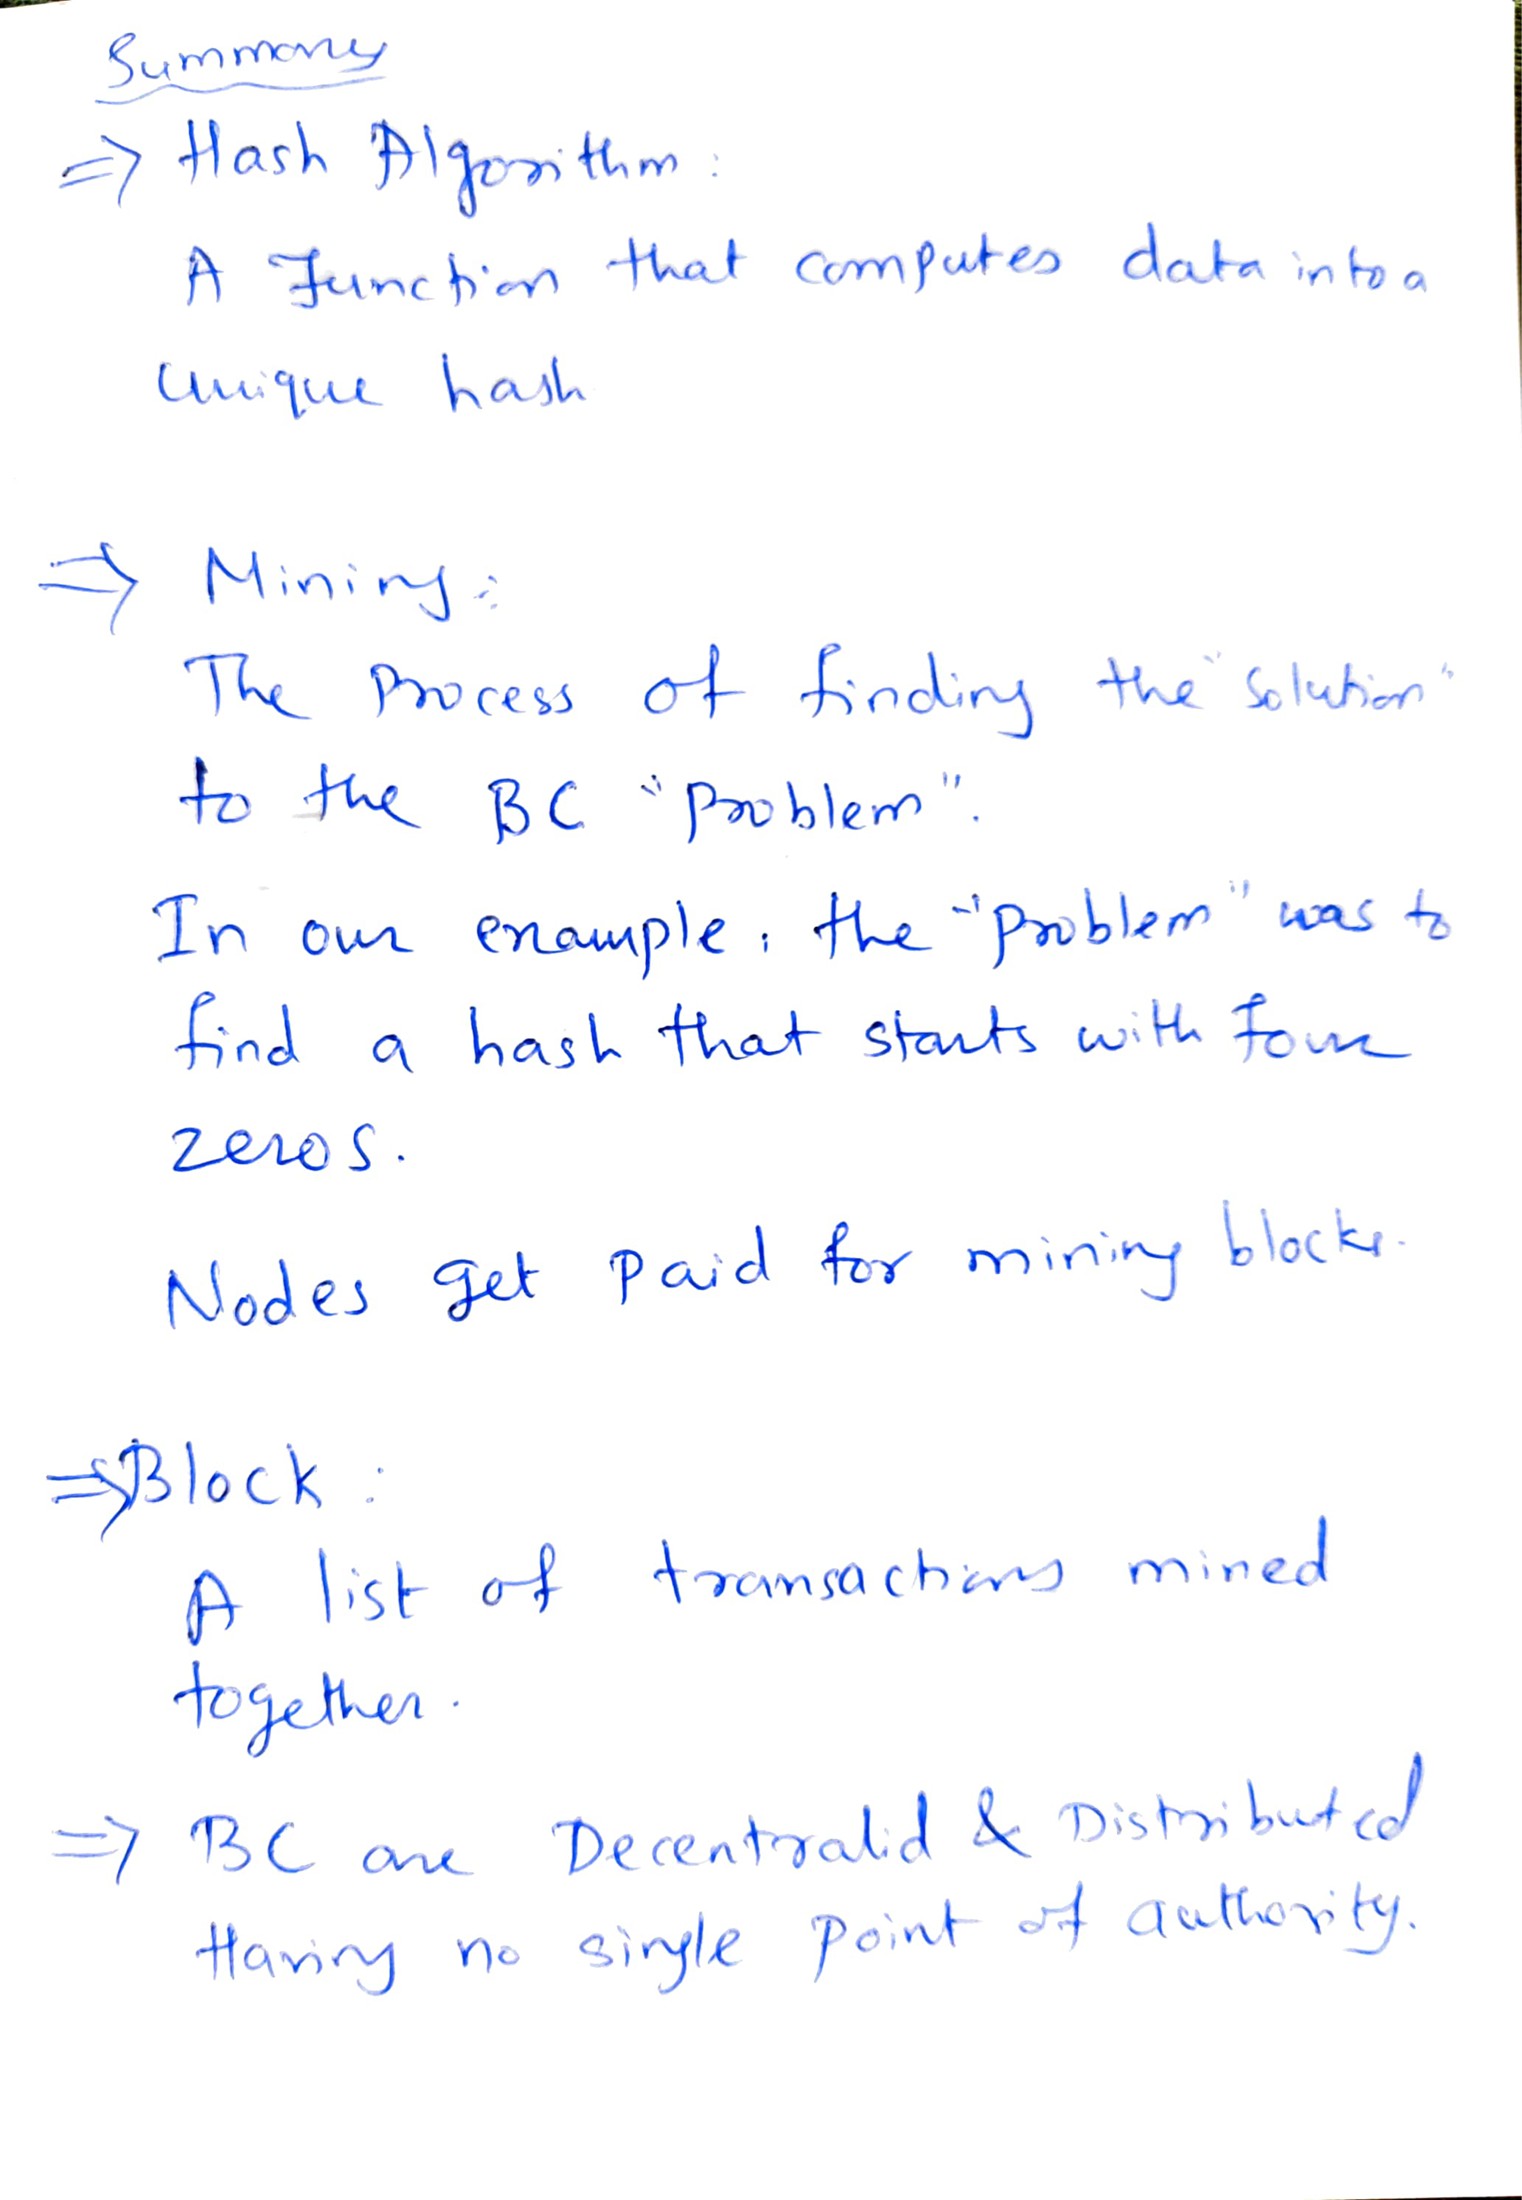 Summary
⇒ Hash Algorithm:
A Function that computes data into a
unique hash
⇒ Mining:
The Process of finding the "Solution"
to the BC "Problem".
In our example, the "Problem" was to
find a hash that starts with four
zeros.
Nodes get Paid for mining blocks.
⇒ Block:
A list of transactions mined
together.
⇒ BC are Decentralid & Distributed
Having no single Point of authority.